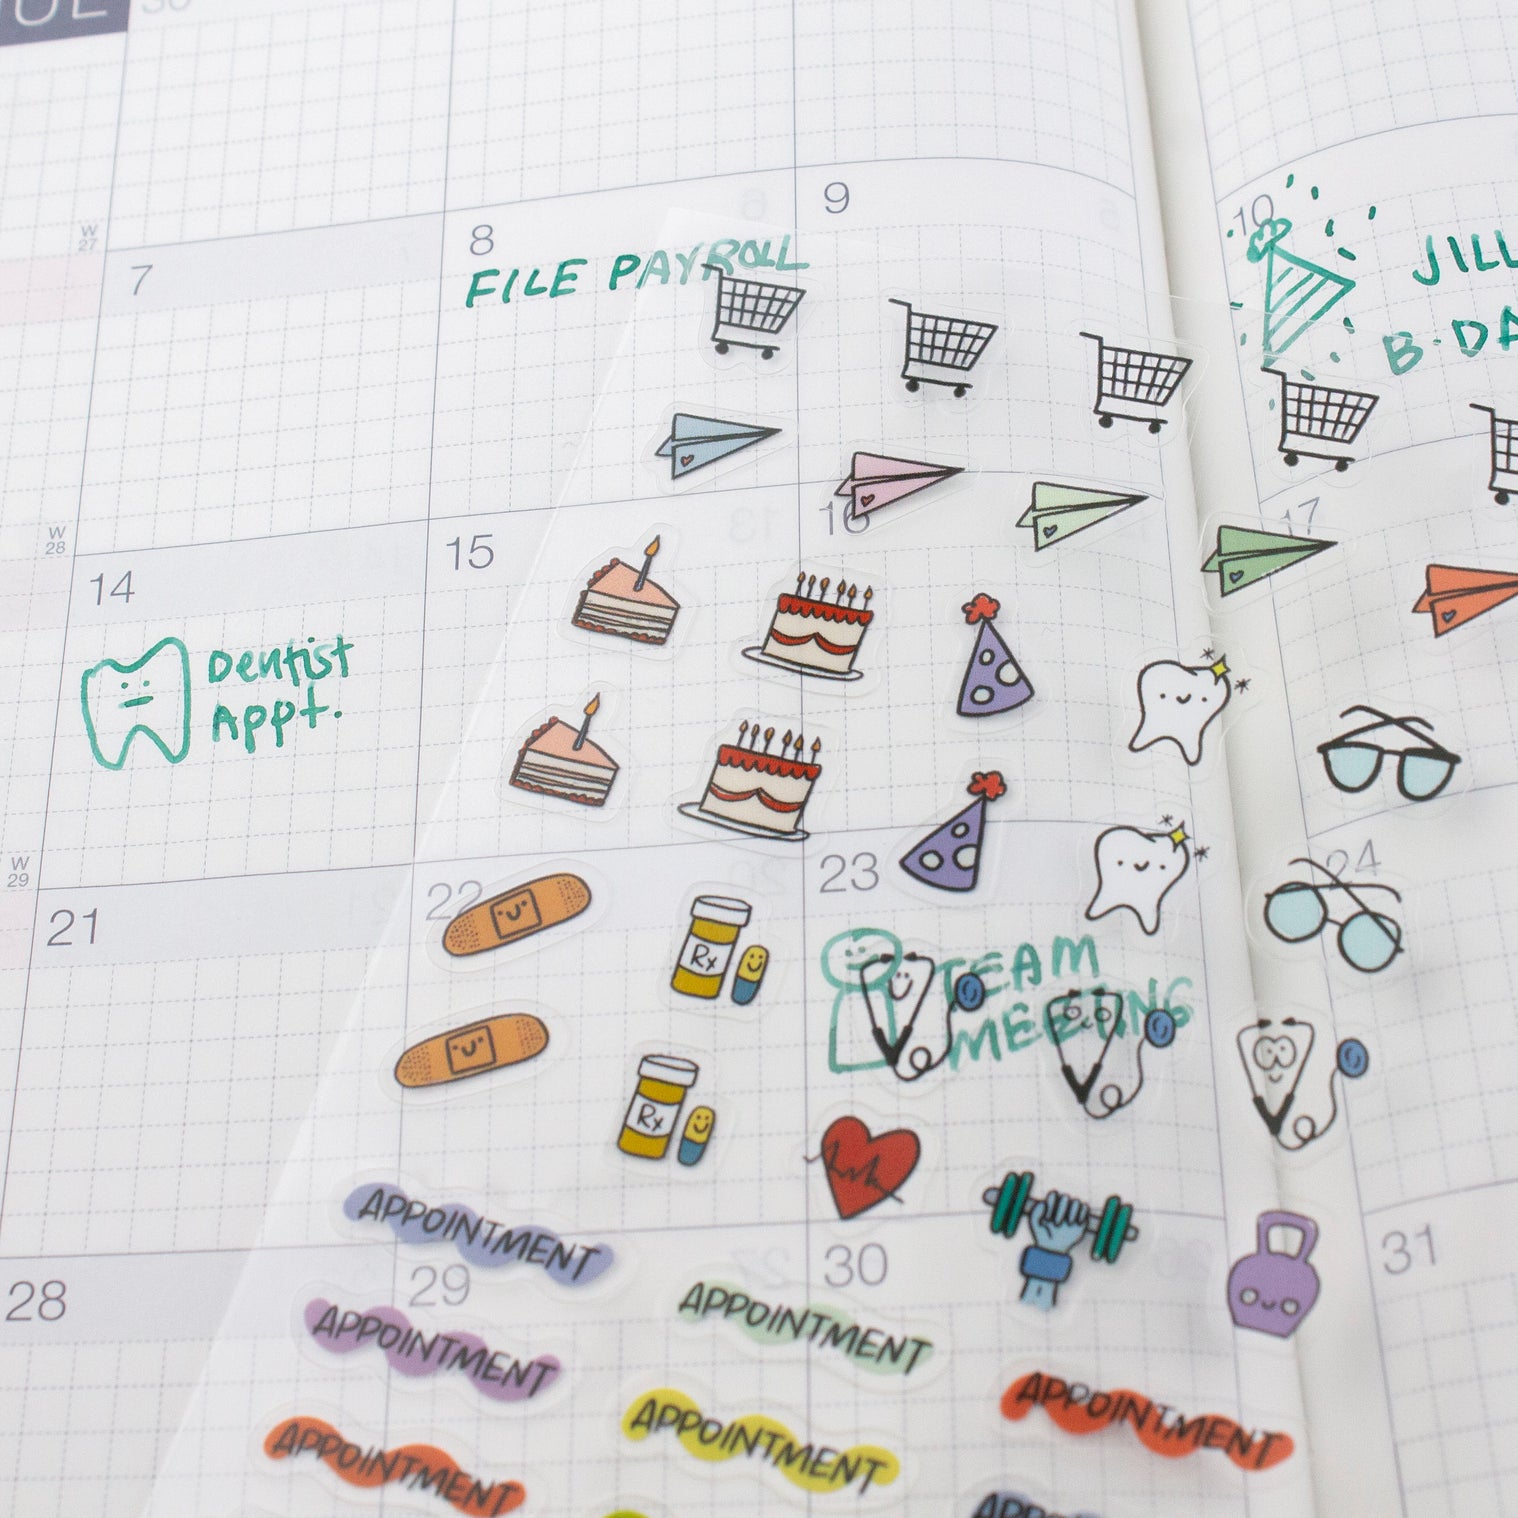 30
W
27
7
8
FILE PAYROLL
9
10
JILL
B-DA
W
28
14
Dentist
Appt.
15
16
17
W
29
21
22
23
TEAM
MEETING
24
Rx
Rx
28
29
30
31
APPOINTMENT
APPOINTMENT
APPOINTMENT
APPOINTMENT
APPOINTMENT
APPOINTMENT